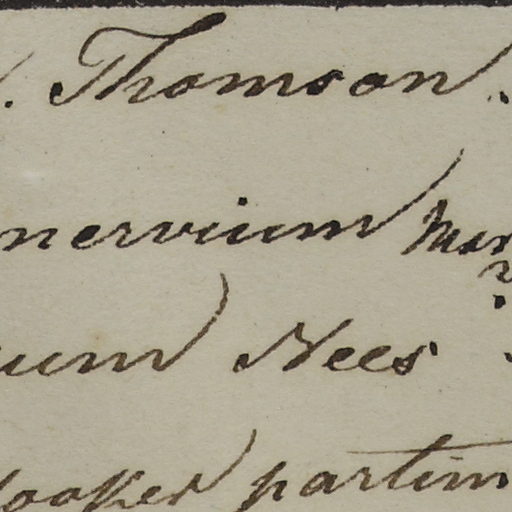 . Thomson.
nervium Mun
?
ium Nees
Hooker partim